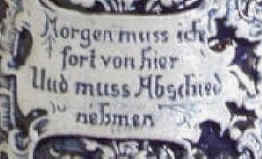 Morgen muss ich
fort von hier
Und muss Abschied
nehmen